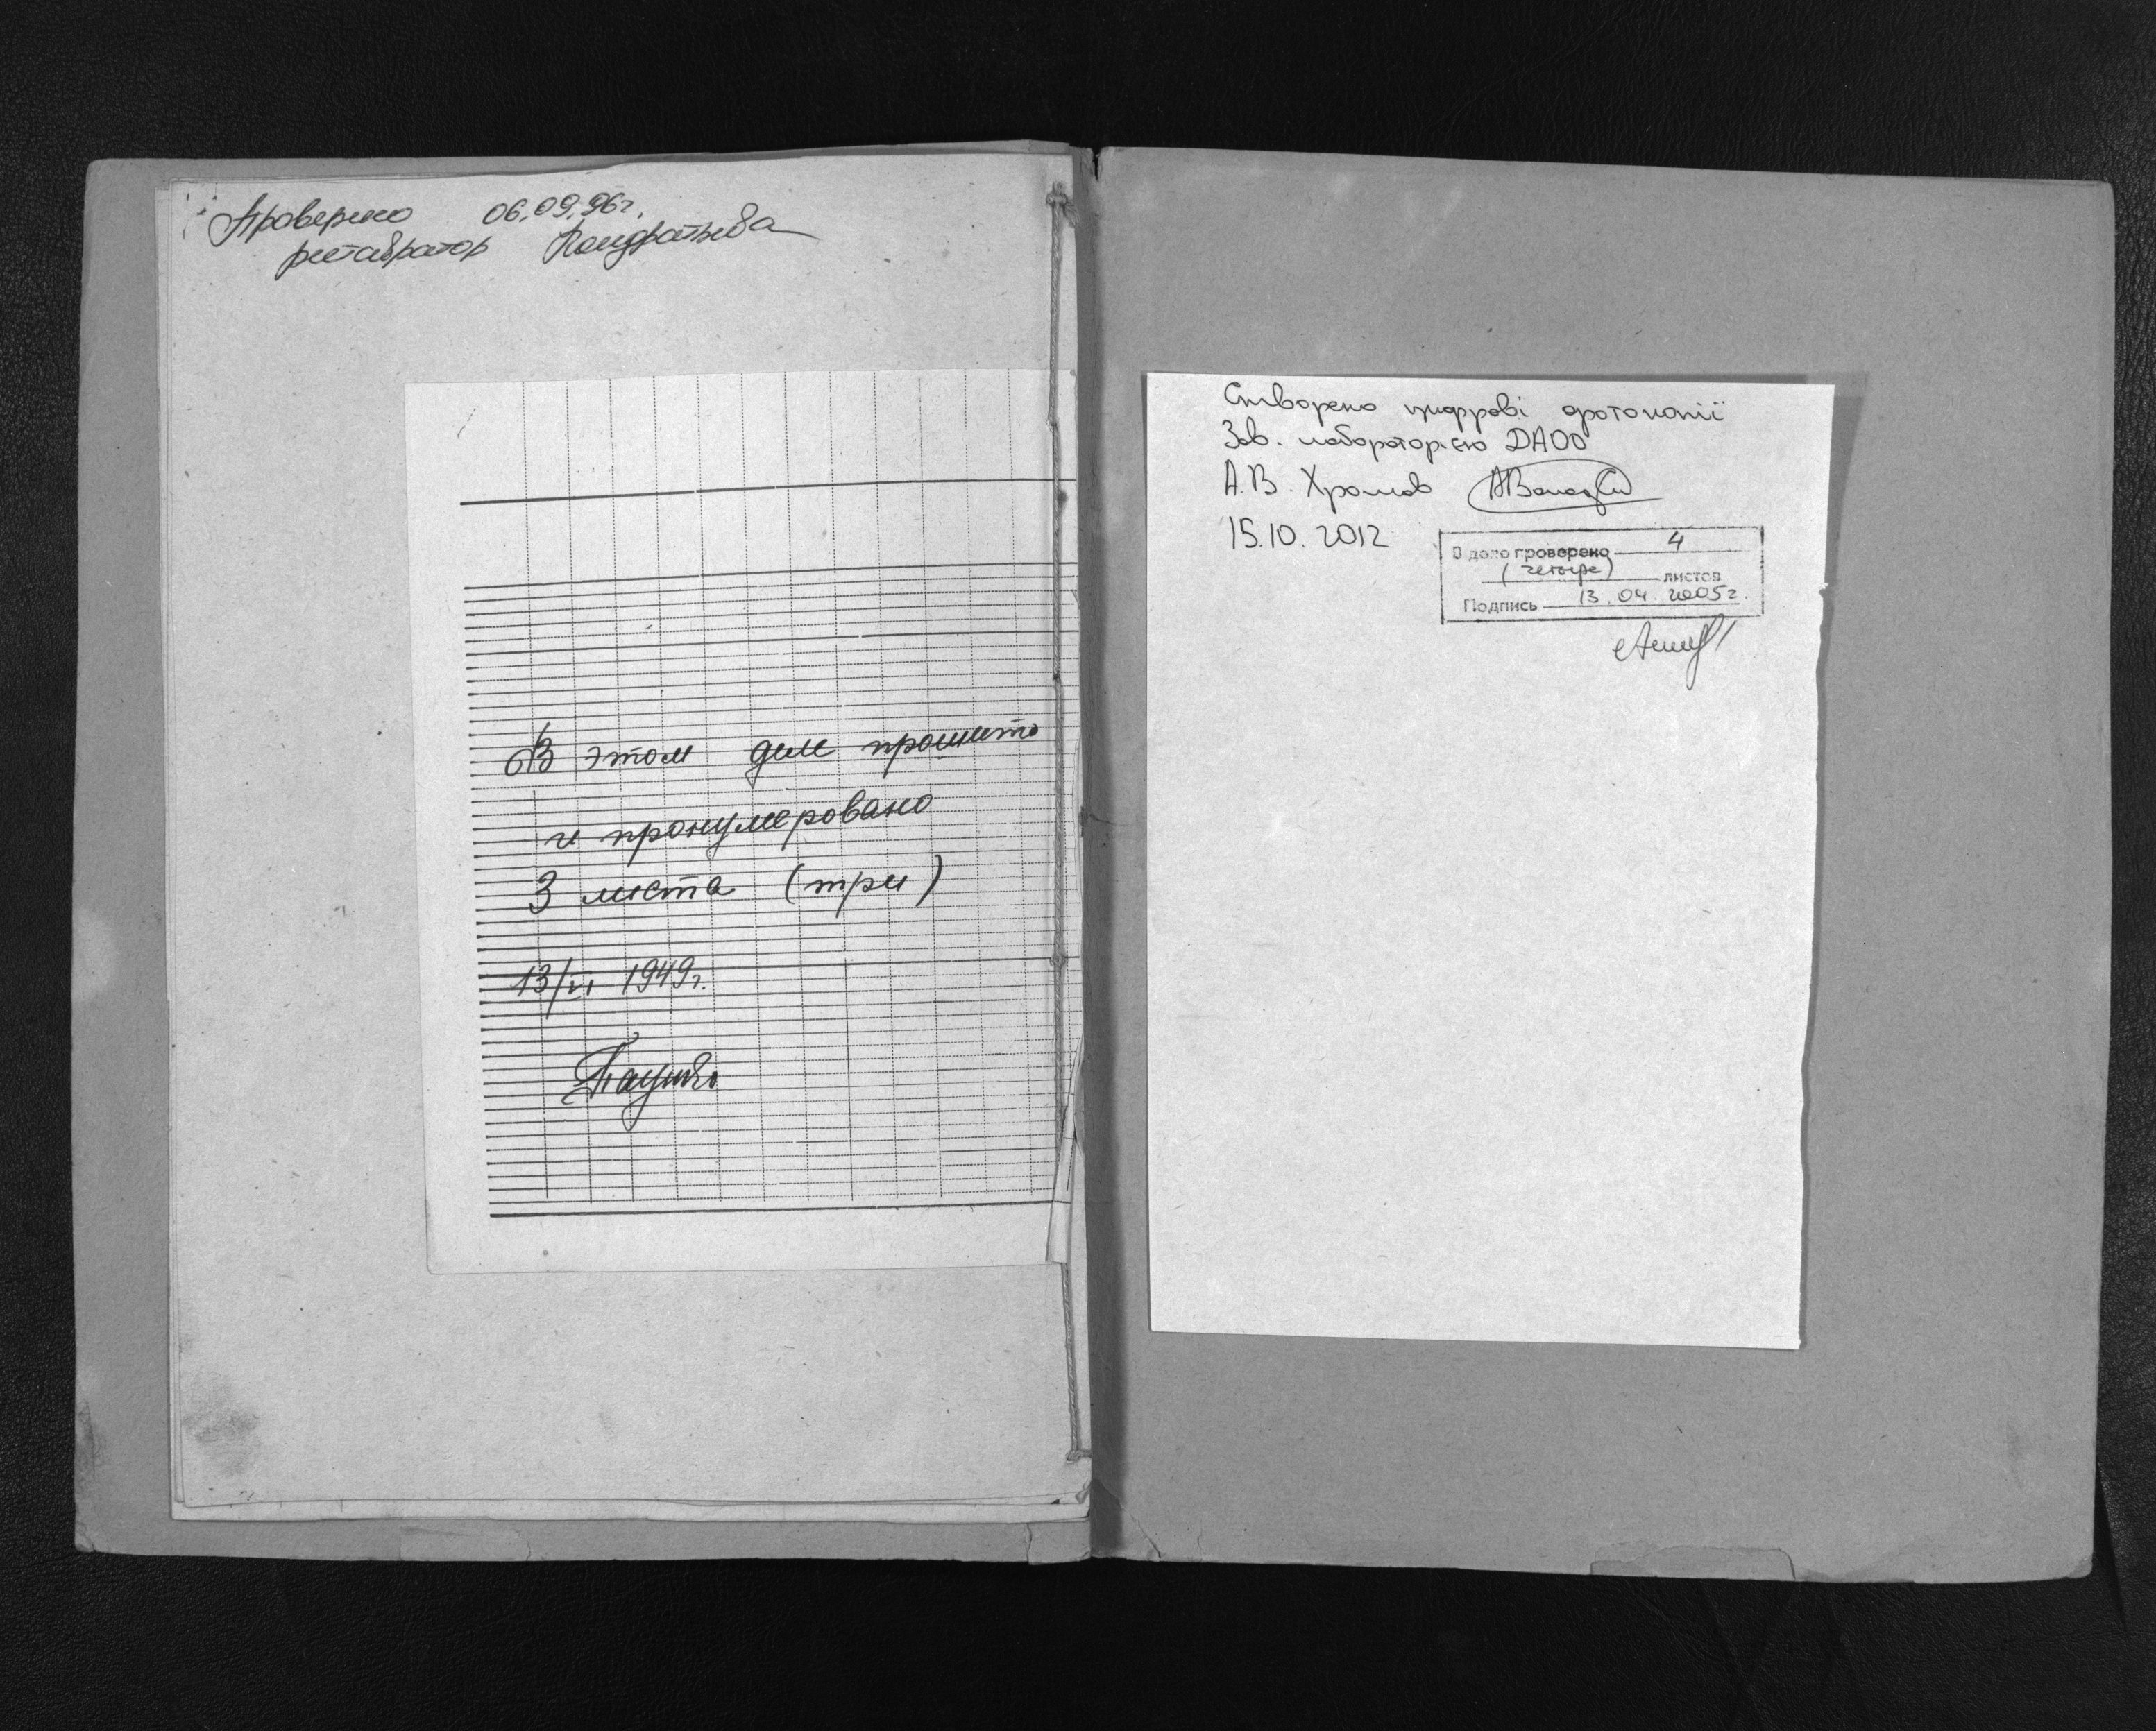 Проверено 06.09.96г.
реставратор Кондратьева
В этом деле прошито
и пронумеровано
3 листа (три)
13/VI 1949г.
Створено цифрові фотокопії
Зав. лабораторією ДАОО
А.В. Хромов
15.10.2012
В деле проверено 4
(четыре) листов
Подпись 13.04.2005г.